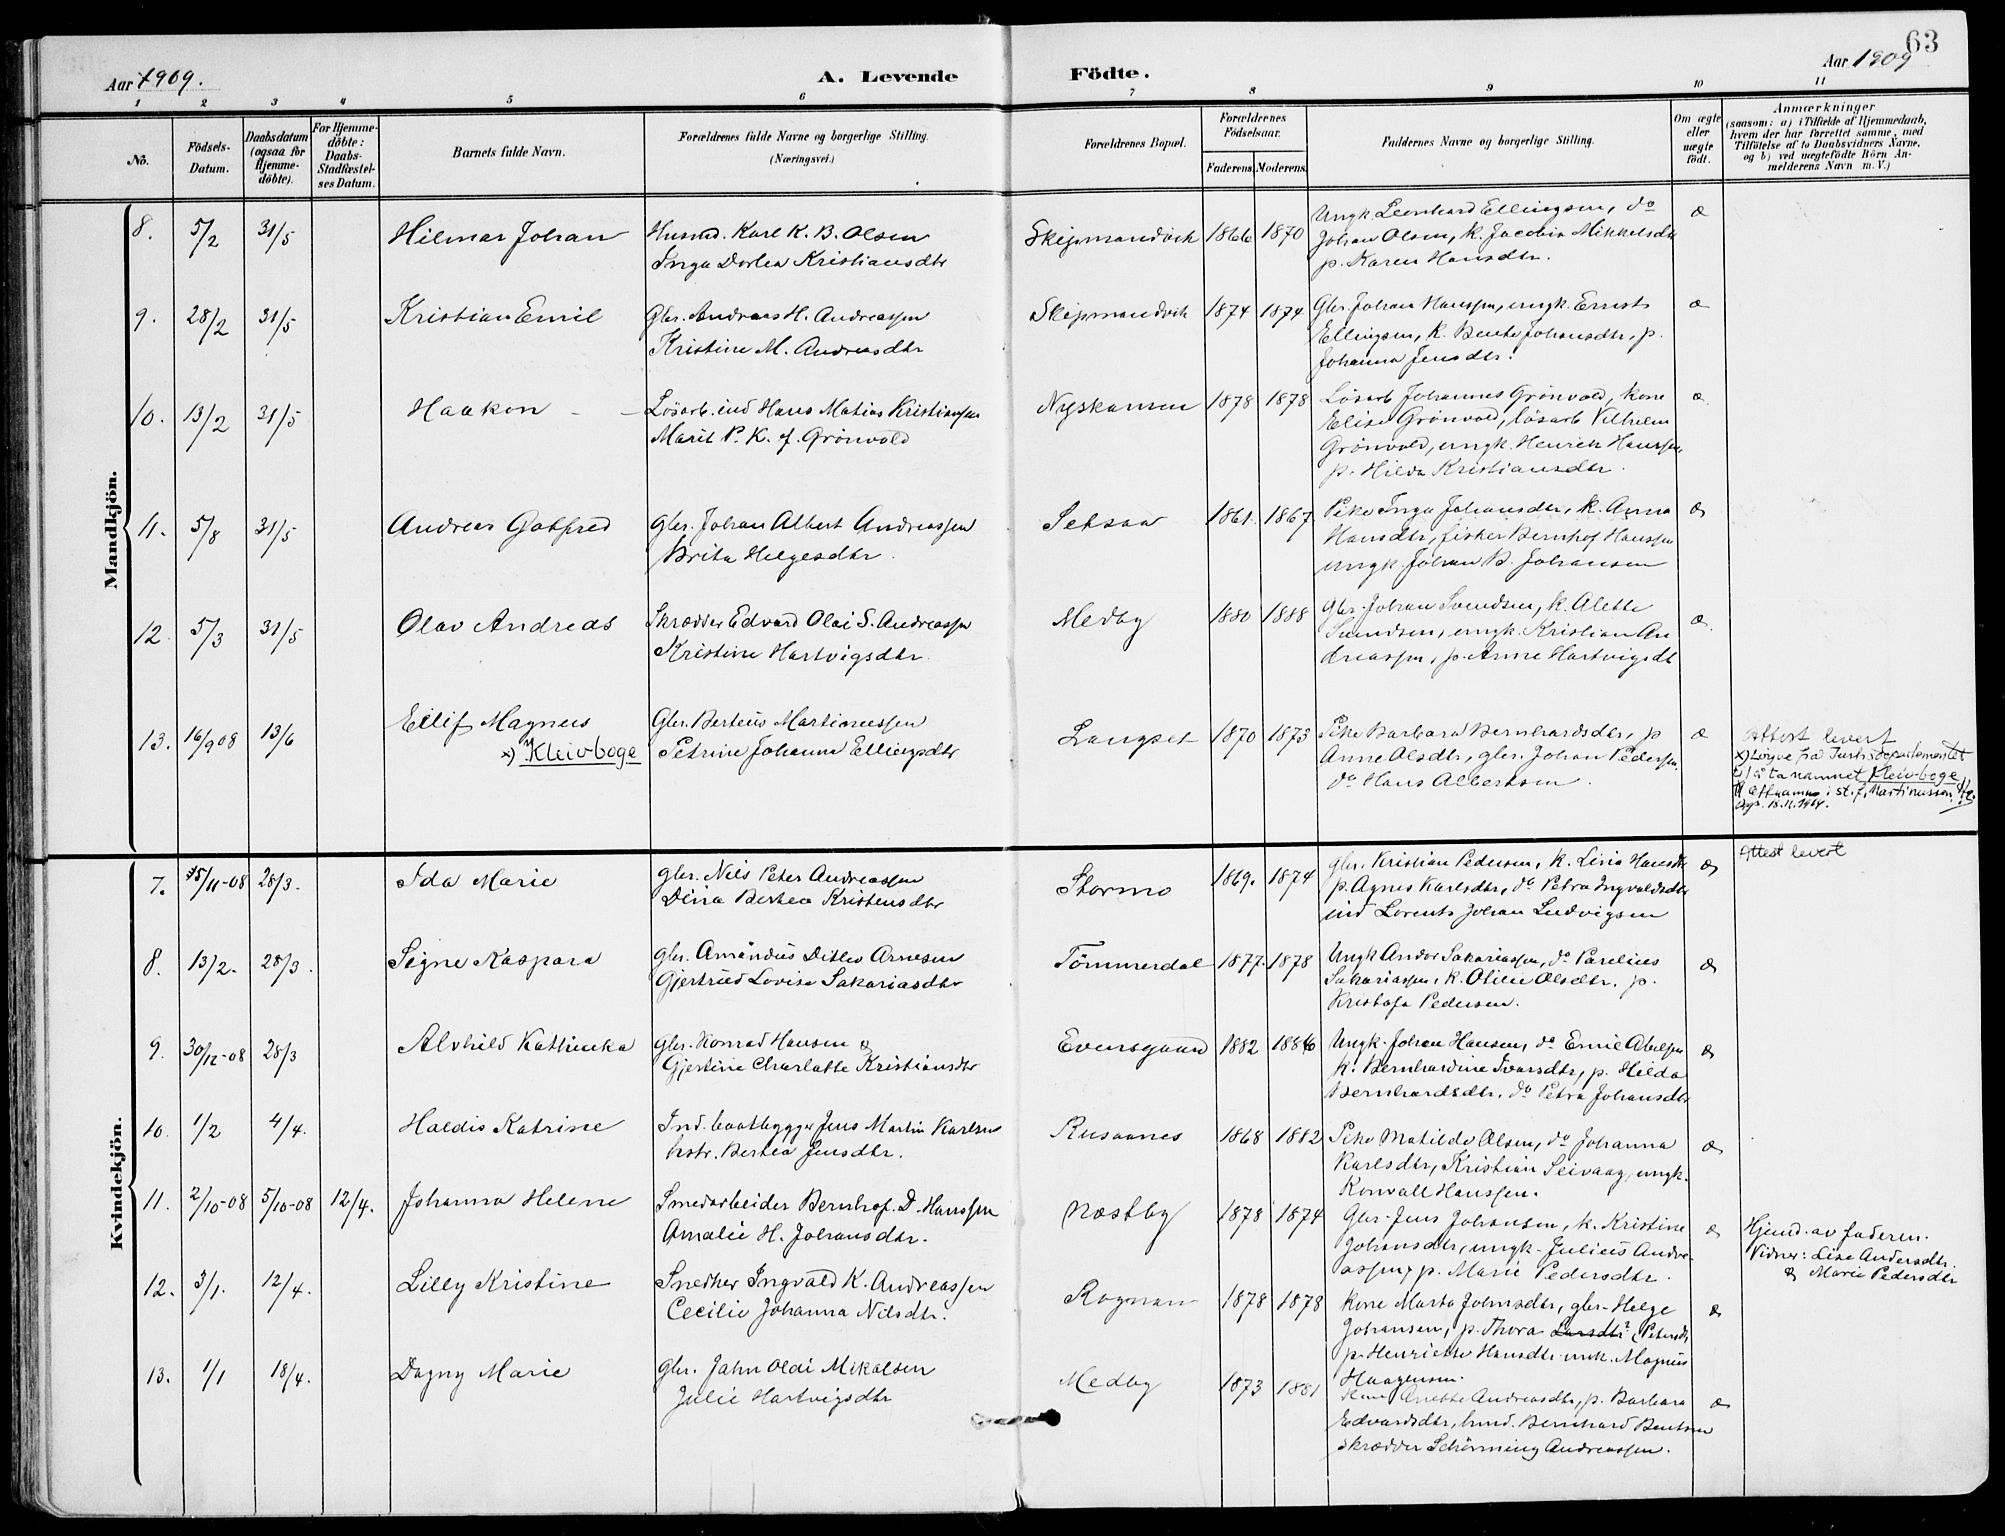 63
Aar 1909.
A. Levende
Födte.
Aar 1909
1 2 3 4 5 6 7 8 9 10 11
No.
Födsels-
Datum.
Daabsdatum
(ogsaa for
Hjemme-
döbte).
For Hjemme-
döbte:
Daabs-
Stadfæstel-
ses Datum.
Barnets fulde Navn.
Forældrenes fulde Navne og borgerlige Stilling.
(Næringsvei.)
Forældrenes Bopæl.
Forældrenes
Födselsaar.
Faderens. Moderens.
Faddernes Navne og borgerlige Stilling.
Om ægte
eller
uægte
født.
Anmærkninger
(saasom: a) i Tilfælde af Hjemmedaab,
hvem der har forrettet samme, med
Tilföielse af to Daabsvidners Navne,
og b) ved uægtefödte Börn An-
melderens Navn m. V.)
Mandkjön.
8. 5/2 31/5 Hilmar Johan
Husmd. Karl K. B. Olsen
Inga Dorlea Kristiansdtr
Skipmandvik 1866 1870
Ungk. Leonhard Ellingsen, do
Johan Olsen, k. Jacobia Mikkelsdtr
p. Karen Hansdtr.
æ
9. 28/2 31/5 Kristian Emil
Gbr. Andreas H. Andreassen
Kristine M. Andreasdtr
Skipmandvik 1874 1874
Gbr. Johan Hanssen, ungk. Ernst
Ellingsen, k. Bente Johansdtr, p.
Johanna Jensdtr.
æ
10. 13/2 31/5 Haakon
Løsarb. ind Hans Matias Kristiansen
Marit P. K. f. Grönvold
Nyskansen 1878 1878
Løsarb Johannes Grønvold, kone
Elise Grønvold, løsarb Vilhelm
Grønvold, ungk. Henrik Hanssen,
p. Hilda Kristiansdtr.
æ
11. 5/8 31/5 Andreas Gotfred
Gbr. Johan Albert Andreassen
Brita Helgesdtr.
Setsaa 1861. 1867
Pike Inga Johansdtr, k. Anna
Hansdtr, fisker Bernhof Hanssen
ungk. Johan B. Johansen
æ
12. 5/3 31/5 Olav Andreas
Skrædder Edvard Olai S. Andreassen
Kristine Hartvigsdtr.
Medby 1880 1888
Gbr. Johan Svendsen, k. Alette
Svendsen, ungk. Kristian An
dreassen, p. Anne Hartvigsdt
æ
13. 16/9 08 13/6 Eilif Magnus
x) Kleivboge
Gbr. Berteus Martinussen
Petrine Johanna Ellingsdtr
Langset 1870 1873
Pike Barbara Bernhardsdtr, p
Anne Olsdtr, gbr. Johan Pedersen,
do Hans Albertsen.
æ
Attest levert
x) Løyve frå Justisdepartementet
til å ta namnet Kleivboge
st. f. Martinussen
18.11.1964.
Kvindekjön.
7. 15/11-08 28/3. Ida Marie
gbr. Nils Peter Andreassen
Dina Bertea Kristensdtr
Stormo 1869. 1874
gbr. Kristian Pedersen, k. Lina Hansdtr
p. Agnes Karlsdtr, do Petra Ingvaldsdtr
ind Lorents Johan Ludvigsen
æ
Attest levert
8. 13/2. 28/3. Signe Kaspara
gbr. Amandus Ditlev Arnesen
Gjertrud Lovise Sakariasdtr
Tømmerdal 1877. 1878
Ungk Andor Sakariassen, do Parelius
Sakariassen, k. Otilie Olsdtr. p.
Kristofa Pedersen.
æ
9. 30/12-08 28/3 Alvhild Kathinka
gbr. Konrad Hansen &
Gjertine Charlotte Kristiansdtr
Evensgaard 1882 1886
Ungk. Johan Hansen, do Emil Abelsen
k. Bernhardine Ivarsdtr, p. Hilda
Bernhardsdtr. do Petra Johansdtr
æ
10. 1/2 4/4. Haldis Katrine
Ind. baatbygger Jens Martin Karlsen
hstr. Bertea Jensdtr.
Rusaanes 1868 1882
Pike Matilde Olsen, do Johanna
Karlsdtr, Kristian Seivaag, ungk.
Konvall Hanssen.
æ
11. 2/10-08 5/10-08 12/4. Johanna Helene
Smedarbeider Bernhof. D. Hanssen
Amalie H. Johansdtr.
Næstby 1878 1874
Gbr. Jens Johansen, k. Kristine
Johansdtr, ungk. Julius Andre-
assen, p. Marie Pedersdtr.
æ
Hjemd. av faderen.
Vidner: Lise Andersdtr.
& Marie Pedersdtr
12. 3/1. 12/4. Lilly Kristine
Snedker Ingvald K. Andreassen
Cecilie Johanna Nilsdtr.
Rognan 1878 1878
Kone Marta Johnsdtr, gbr. Helge
Johansen, p. Thora Larsdtr? (Petersdtr
p. Henriette Hansdtr. unk. Magnus
Haagensen.
æ
13. 1/1 18/4. Dagny Marie
gbr. Jahn Olai Mikalsen
Julie Hartvigsdtr
Medby 1873 1881
Kone Anette Andreasdtr, p. Barbara
Edvardsdtr, husmd. Bernhard Bentsen
skrædder Schønning Andreassen.
æ